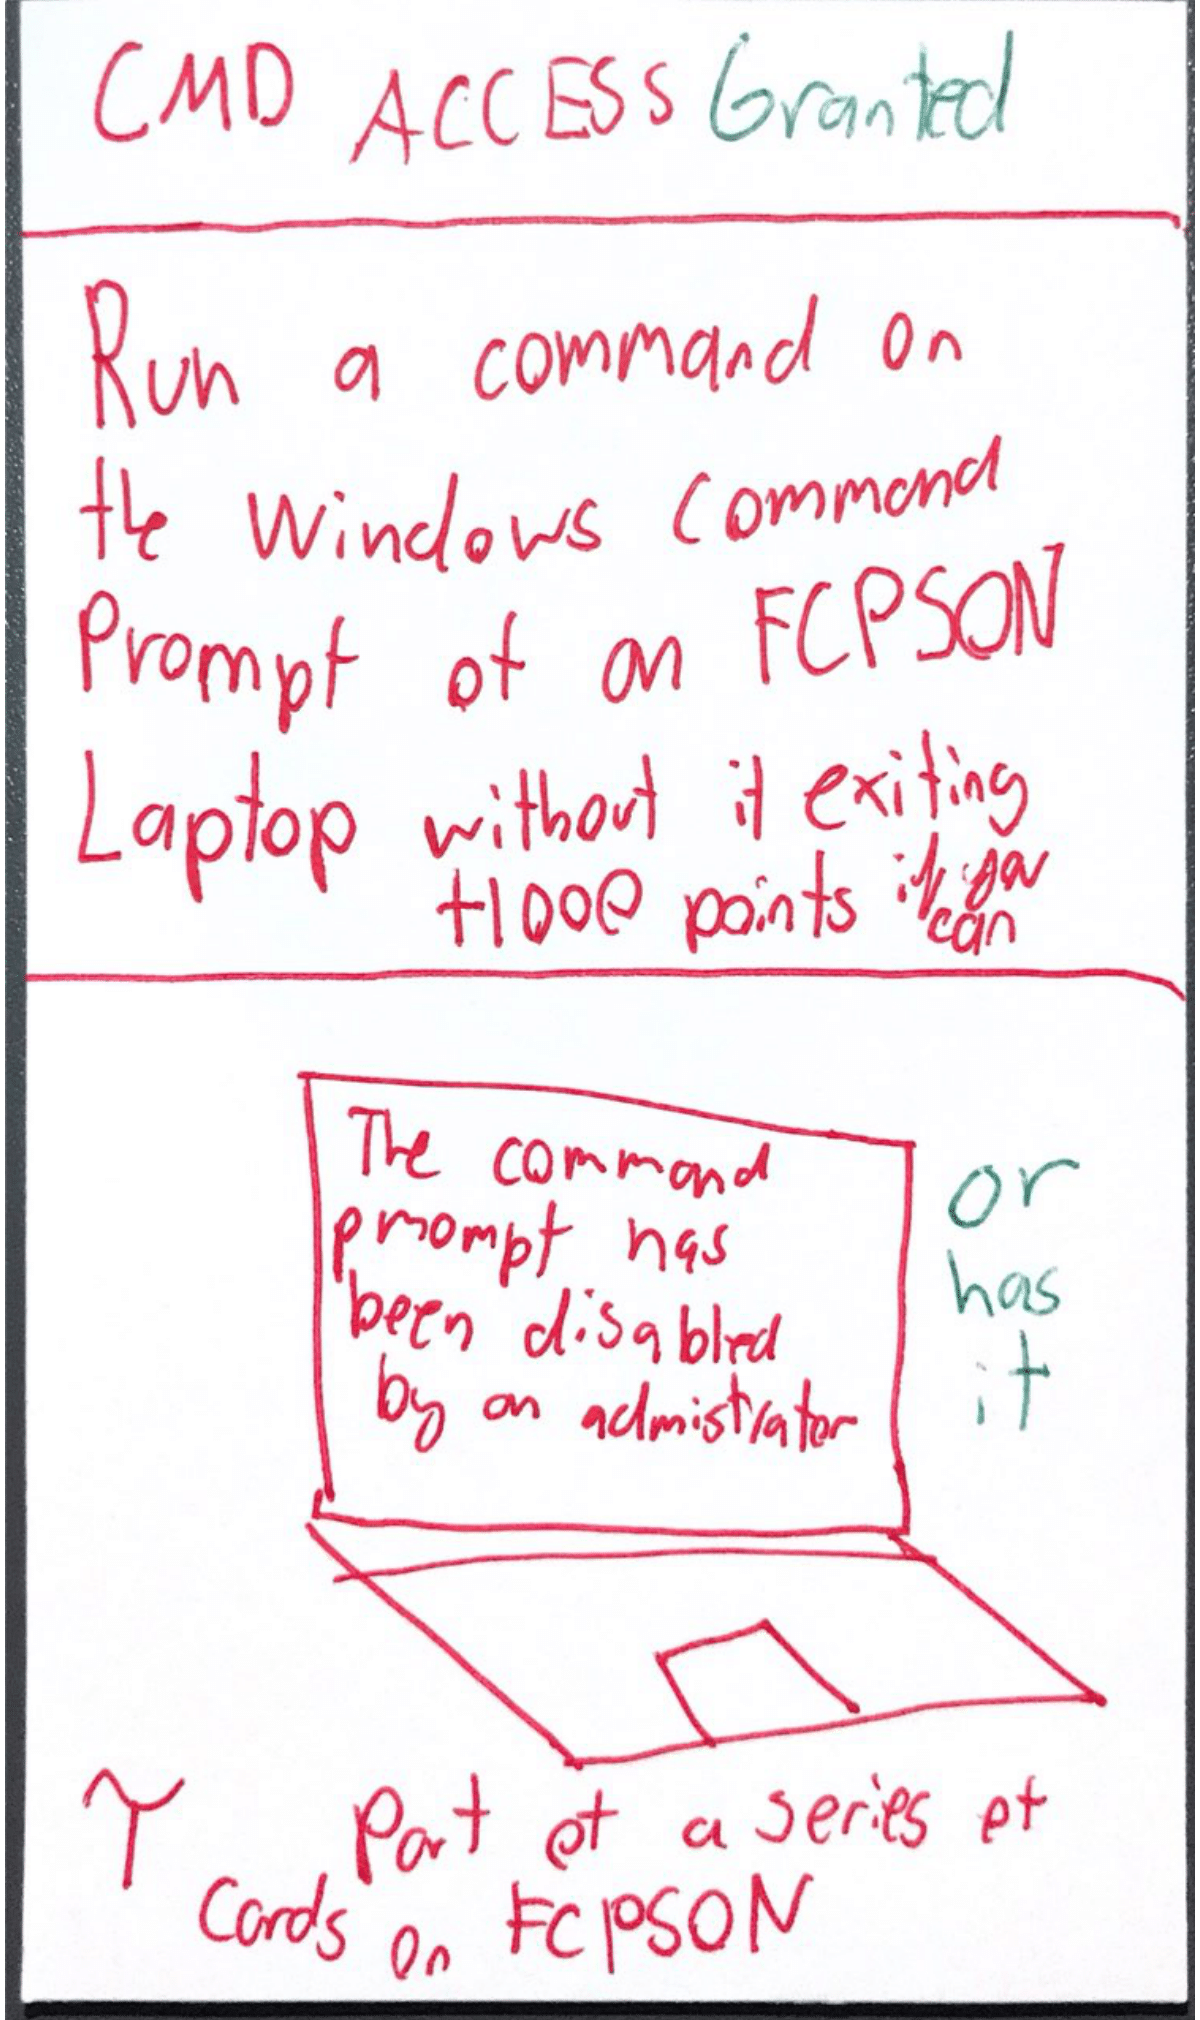 CMD ACCESS Granted
Run a command on
the Windows Command
Prompt of an FCPSON
Laptop without it exiting
+1000 points if you
can
The command
prompt has
been disabled
by an admistrator
or
has
it
Part of a series of
Cards on FCPSON